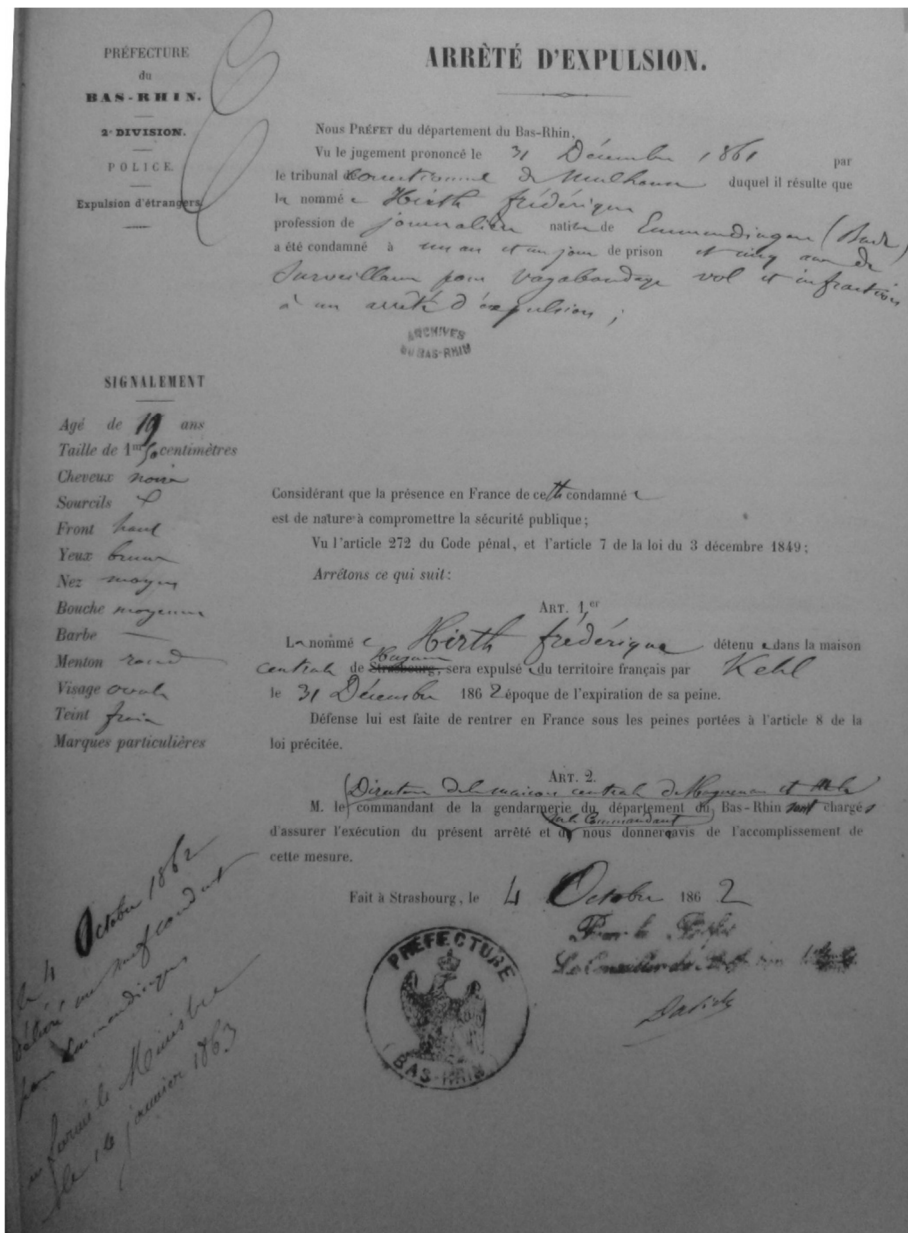 PRÉFECTURE
du
BAS-RHIN.
2e DIVISION.
POLICE
Expulsion d'étrangers
ARRÊTÉ D'EXPULSION.
Nous PRÉFET du département du Bas-Rhin,
Vu le jugement prononcé le 31 Décembre 1861 par
le tribunal correctionnel de Mulhouse duquel il résulte que
la nommée Hirth frédérique
profession de journalière native de Emmendingen (Bade)
a été condamné à un an et un jour de prison et cinq ans de
Surveillance pour vagabondage vol et infraction
à un arrêté d'expulsion;
ARCHIVES
DU BAS-RHIN
SIGNALEMENT
Agé de 19 ans
Taille de 1m 50 centimètres
Cheveux noirs
Sourcils
Front haut
Yeux bruns
Nez moyen
Bouche moyenne
Barbe —
Menton rond
Visage ovale
Teint frais
Marques particulières
Considérant que la présence en France de cette condamnée
est de nature à compromettre la sécurité publique;
Vu l'article 272 du Code pénal, et l'article 7 de la loi du 3 décembre 1849;
Arrêtons ce qui suit:
ART. 1er
La nommée Hirth frédérique détenue dans la maison
centrale de Strasbourg, Haguenau sera expulsée du territoire français par Kehl
le 31 Décembre 1862 époque de l'expiration de sa peine.
Défense lui est faite de rentrer en France sous les peines portées à l'article 8 de la
loi précitée.
ART. 2.
(Directeur de la maison centrale de Haguenau et M. le
M. le commandant de la gendarmerie du département du Bas-Rhin sont chargés
d'assurer l'exécution du présent arrêté et de nous donner avis de l'accomplissement de
cette mesure.
Fait à Strasbourg, le 4 Octobre 1862
Pour le Préfet
Le Conseiller de
PRÉFECTURE
BAS-RHIN
le 4 Octobre 1862
délivré un sauf conduit
pour Emmendingen
informé le Ministre
le 16 janvier 1863